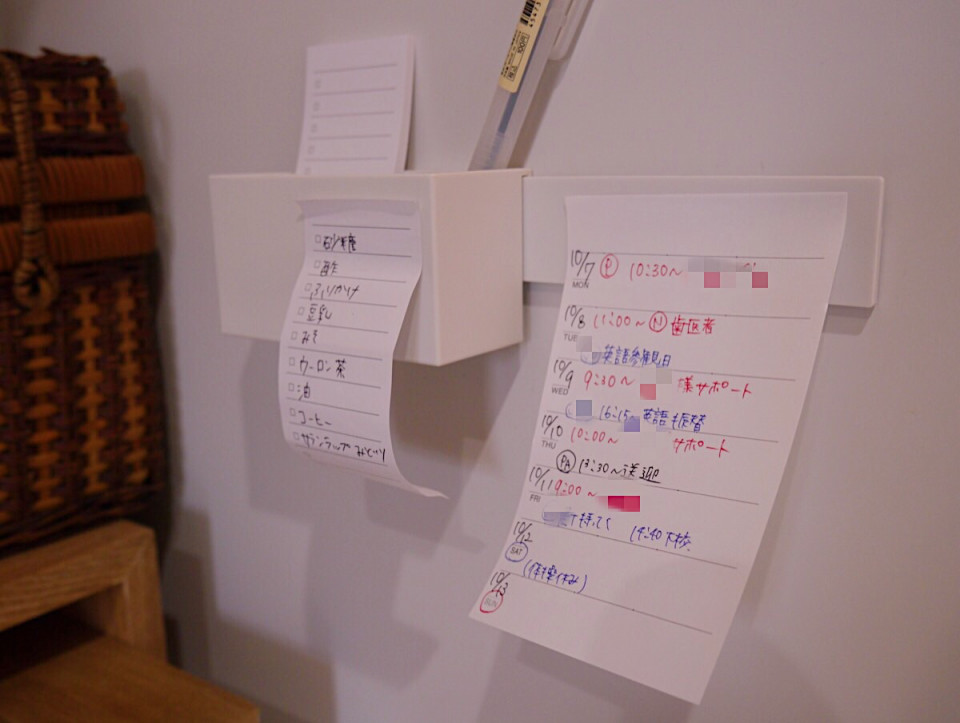 □砂糖
□
□ふりかけ
□豆乳
□みそ
□ウーロン茶
□油
□コーヒー
□サランラップ
10/7 MON Ⓟ 10:30〜
10/8 TUE 11:00〜 Ⓝ 歯医者
英語参観日
10/9 WED 9:30〜 様サポート
16:15〜 英語 振替
10/10 THU 10:00〜 サポート
13:30〜送迎
10/11 FRI 9:00〜
持ってく 14:40下校
10/12 SAT
(体操休み)
10/13 SUN